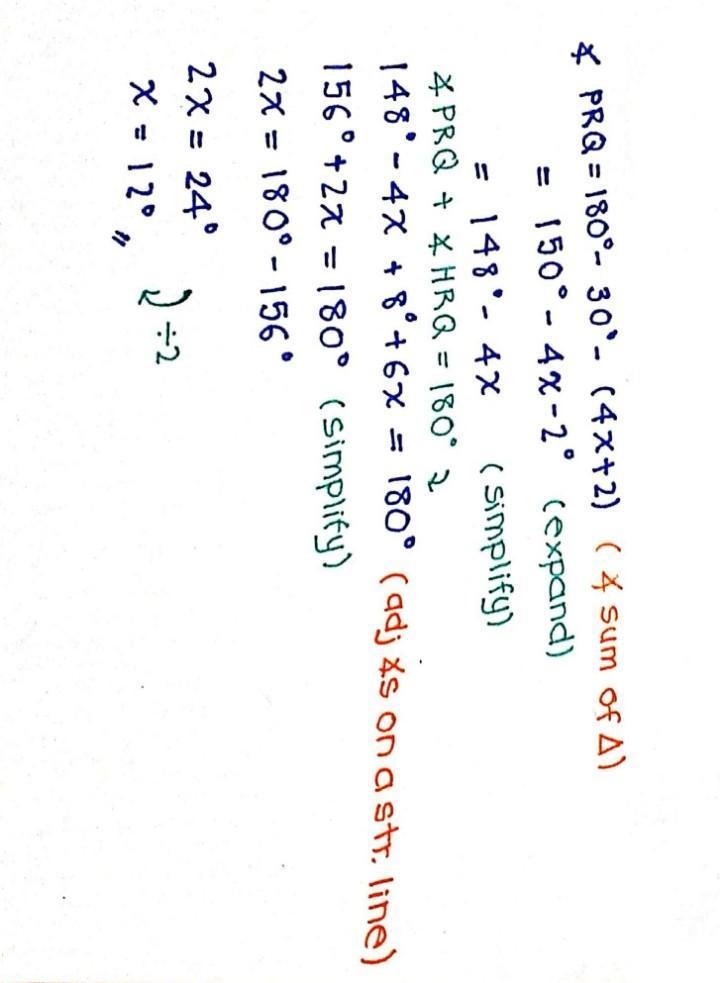 ∡ PRQ = 180° - 30° - (4x+2) (∡ sum of Δ)
= 150° - 4x - 2° (expand)
= 148° - 4x (simplify)
∡ PRQ + ∡ HRQ = 180° 2
148° - 4x + 8° + 6x = 180° (adj ∡s on a str. line)
156° + 2x = 180° (simplify)
2x = 180° - 156°
2x = 24°
÷2
x = 12° „